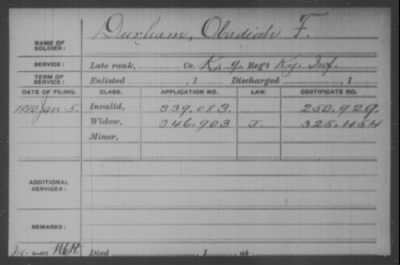 NAME OF SOLDIER: Durham, Obadiah F.
SERVICE: Late rank, Co. K, 9. Reg't Ky. Inf.
TERM OF SERVICE: Enlisted , 1 Discharged , 1
DATE OF FILING. CLASS. APPLICATION NO. LAW. CERTIFICATE NO.
1880 Jan 5. Invalid, 339.013. 250.929.
Widow, 346.903 J. 325.454
Minor,
ADDITIONAL SERVICES:
REMARKS:
Died , 1 , at